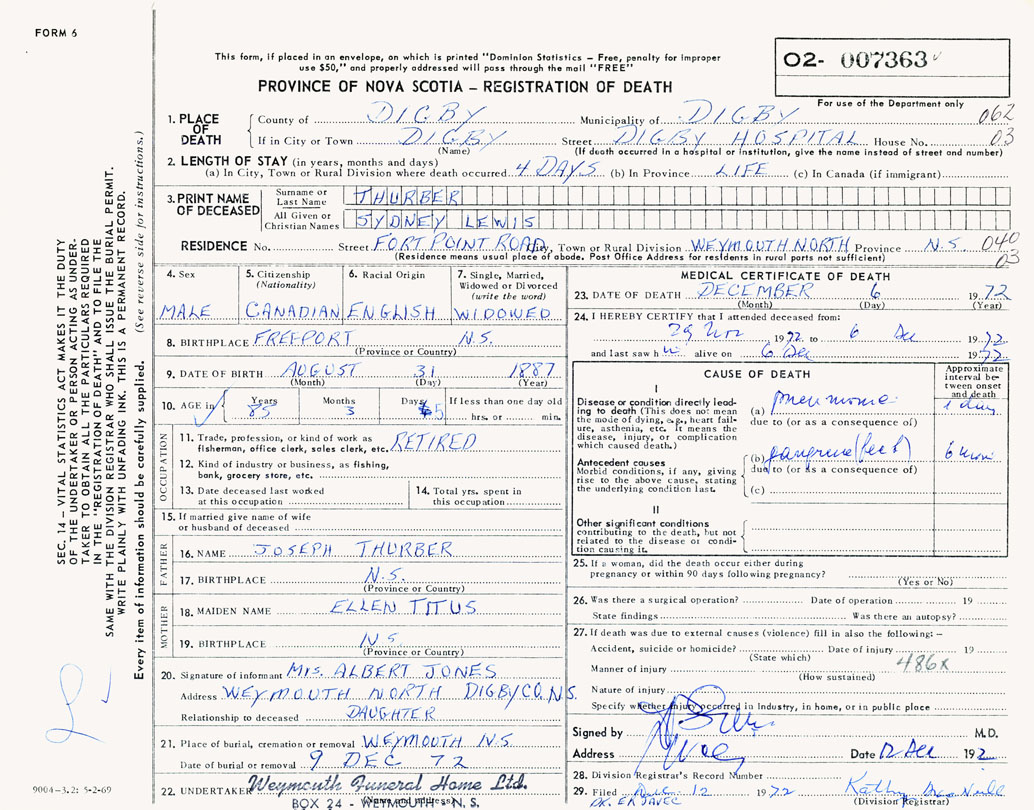 FORM 6
This form, if placed in an envelope, on which is printed "Dominion Statistics – Free, penalty for improper
use $50," and properly addressed will pass through the mail "FREE"
PROVINCE OF NOVA SCOTIA – REGISTRATION OF DEATH
O2- 007363
For use of the Department only
1. PLACE OF DEATH County of DIGBY Municipality of DIGBY 062
If in City or Town DIGBY Street DIGBY HOSPITAL House No. 03
(Name) (If death occurred in a hospital or institution, give the name instead of street and number)
2. LENGTH OF STAY (in years, months and days)
(a) In City, Town or Rural Division where death occurred 4 DAYS (b) In Province LIFE (c) In Canada (if immigrant)
3. PRINT NAME OF DECEASED Surname or Last Name THURBER
All Given or Christian Names SYDNEY LEWIS
RESIDENCE No. Street FORT POINT ROAD City, Town or Rural Division WEYMOUTH NORTH Province N.S. 040
(Residence means usual place of abode. Post Office Address for residents in rural parts not sufficient) 03
4. Sex MALE
5. Citizenship (Nationality) CANADIAN
6. Racial Origin ENGLISH
7. Single, Married, Widowed or Divorced (write the word) WIDOWED
8. BIRTHPLACE FREEPORT N.S.
(Province or Country)
9. DATE OF BIRTH AUGUST 31 1887
(Month) (Day) (Year)
10. AGE in Years 85 Months 3 Days 5 If less than one day old
hrs. or min.
OCCUPATION
11. Trade, profession, or kind of work as RETIRED
fisherman, office clerk, sales clerk, etc.
12. Kind of industry or business, as fishing,
bank, grocery store, etc.
13. Date deceased last worked
at this occupation
14. Total yrs. spent in
this occupation
15. If married give name of wife
or husband of deceased
FATHER
16. NAME JOSEPH THURBER
17. BIRTHPLACE N.S.
(Province or Country)
MOTHER
18. MAIDEN NAME ELLEN TITUS
19. BIRTHPLACE N.S.
(Province or Country)
20. Signature of informant MRS. ALBERT JONES
Address WEYMOUTH NORTH DIGBY CO. N.S.
Relationship to deceased DAUGHTER
21. Place of burial, cremation or removal WEYMOUTH N.S.
Date of burial or removal 9 DEC 72
22. UNDERTAKER Weymouth Funeral Home Ltd.
(Name and address)
BOX 24 - WEYMOUTH, N.S.
MEDICAL CERTIFICATE OF DEATH
23. DATE OF DEATH DECEMBER 6 1972
(Month) (Day) (Year)
24. I HEREBY CERTIFY that I attended deceased from:
29 Nov 1972 to 6 Dec 1972
and last saw him alive on 6 Dec 1972
CAUSE OF DEATH
Approximate interval between onset and death
I
Disease or condition directly leading to death (This does not mean the mode of dying, e.g., heart failure, asthenia, etc. It means the disease, injury, or complication which caused death.)
(a) pneumonia 1 day
due to (or as a consequence of)
Antecedent causes
Morbid conditions, if any, giving rise to the above cause, stating the underlying condition last.
(b) gangrene (feet) 6
due to (or as a consequence of)
(c)
II
Other significant conditions
contributing to the death, but not related to the disease or condition causing it.
25. If a woman, did the death occur either during
pregnancy or within 90 days following pregnancy?
(Yes or No)
26. Was there a surgical operation? Date of operation 19
State findings Was there an autopsy?
27. If death was due to external causes (violence) fill in also the following: –
Accident, suicide or homicide? Date of injury 19
(State which)
Manner of injury 486X
(How sustained)
Nature of injury
Specify whether injury occurred in Industry, in home, or in public place
Signed by M.D.
Address Date 12 Dec 192
28. Division Registrar's Record Number
29. Filed Dec. 12 1972
(Division Registrar)
SEC. 14 – VITAL STATISTICS ACT MAKES IT THE DUTY
OF THE UNDERTAKER OR PERSON ACTING AS UNDER-
TAKER TO OBTAIN ALL THE PARTICULARS REQUIRED
IN THE "REGISTRATION OF DEATH" AND TO FILE THE
SAME WITH THE DIVISION REGISTRAR WHO SHALL ISSUE THE BURIAL PERMIT.
WRITE PLAINLY WITH UNFADING INK. THIS IS A PERMANENT RECORD.
Every item of information should be carefully supplied. (See reverse side for instructions.)
9004-3.2: 5-2-69